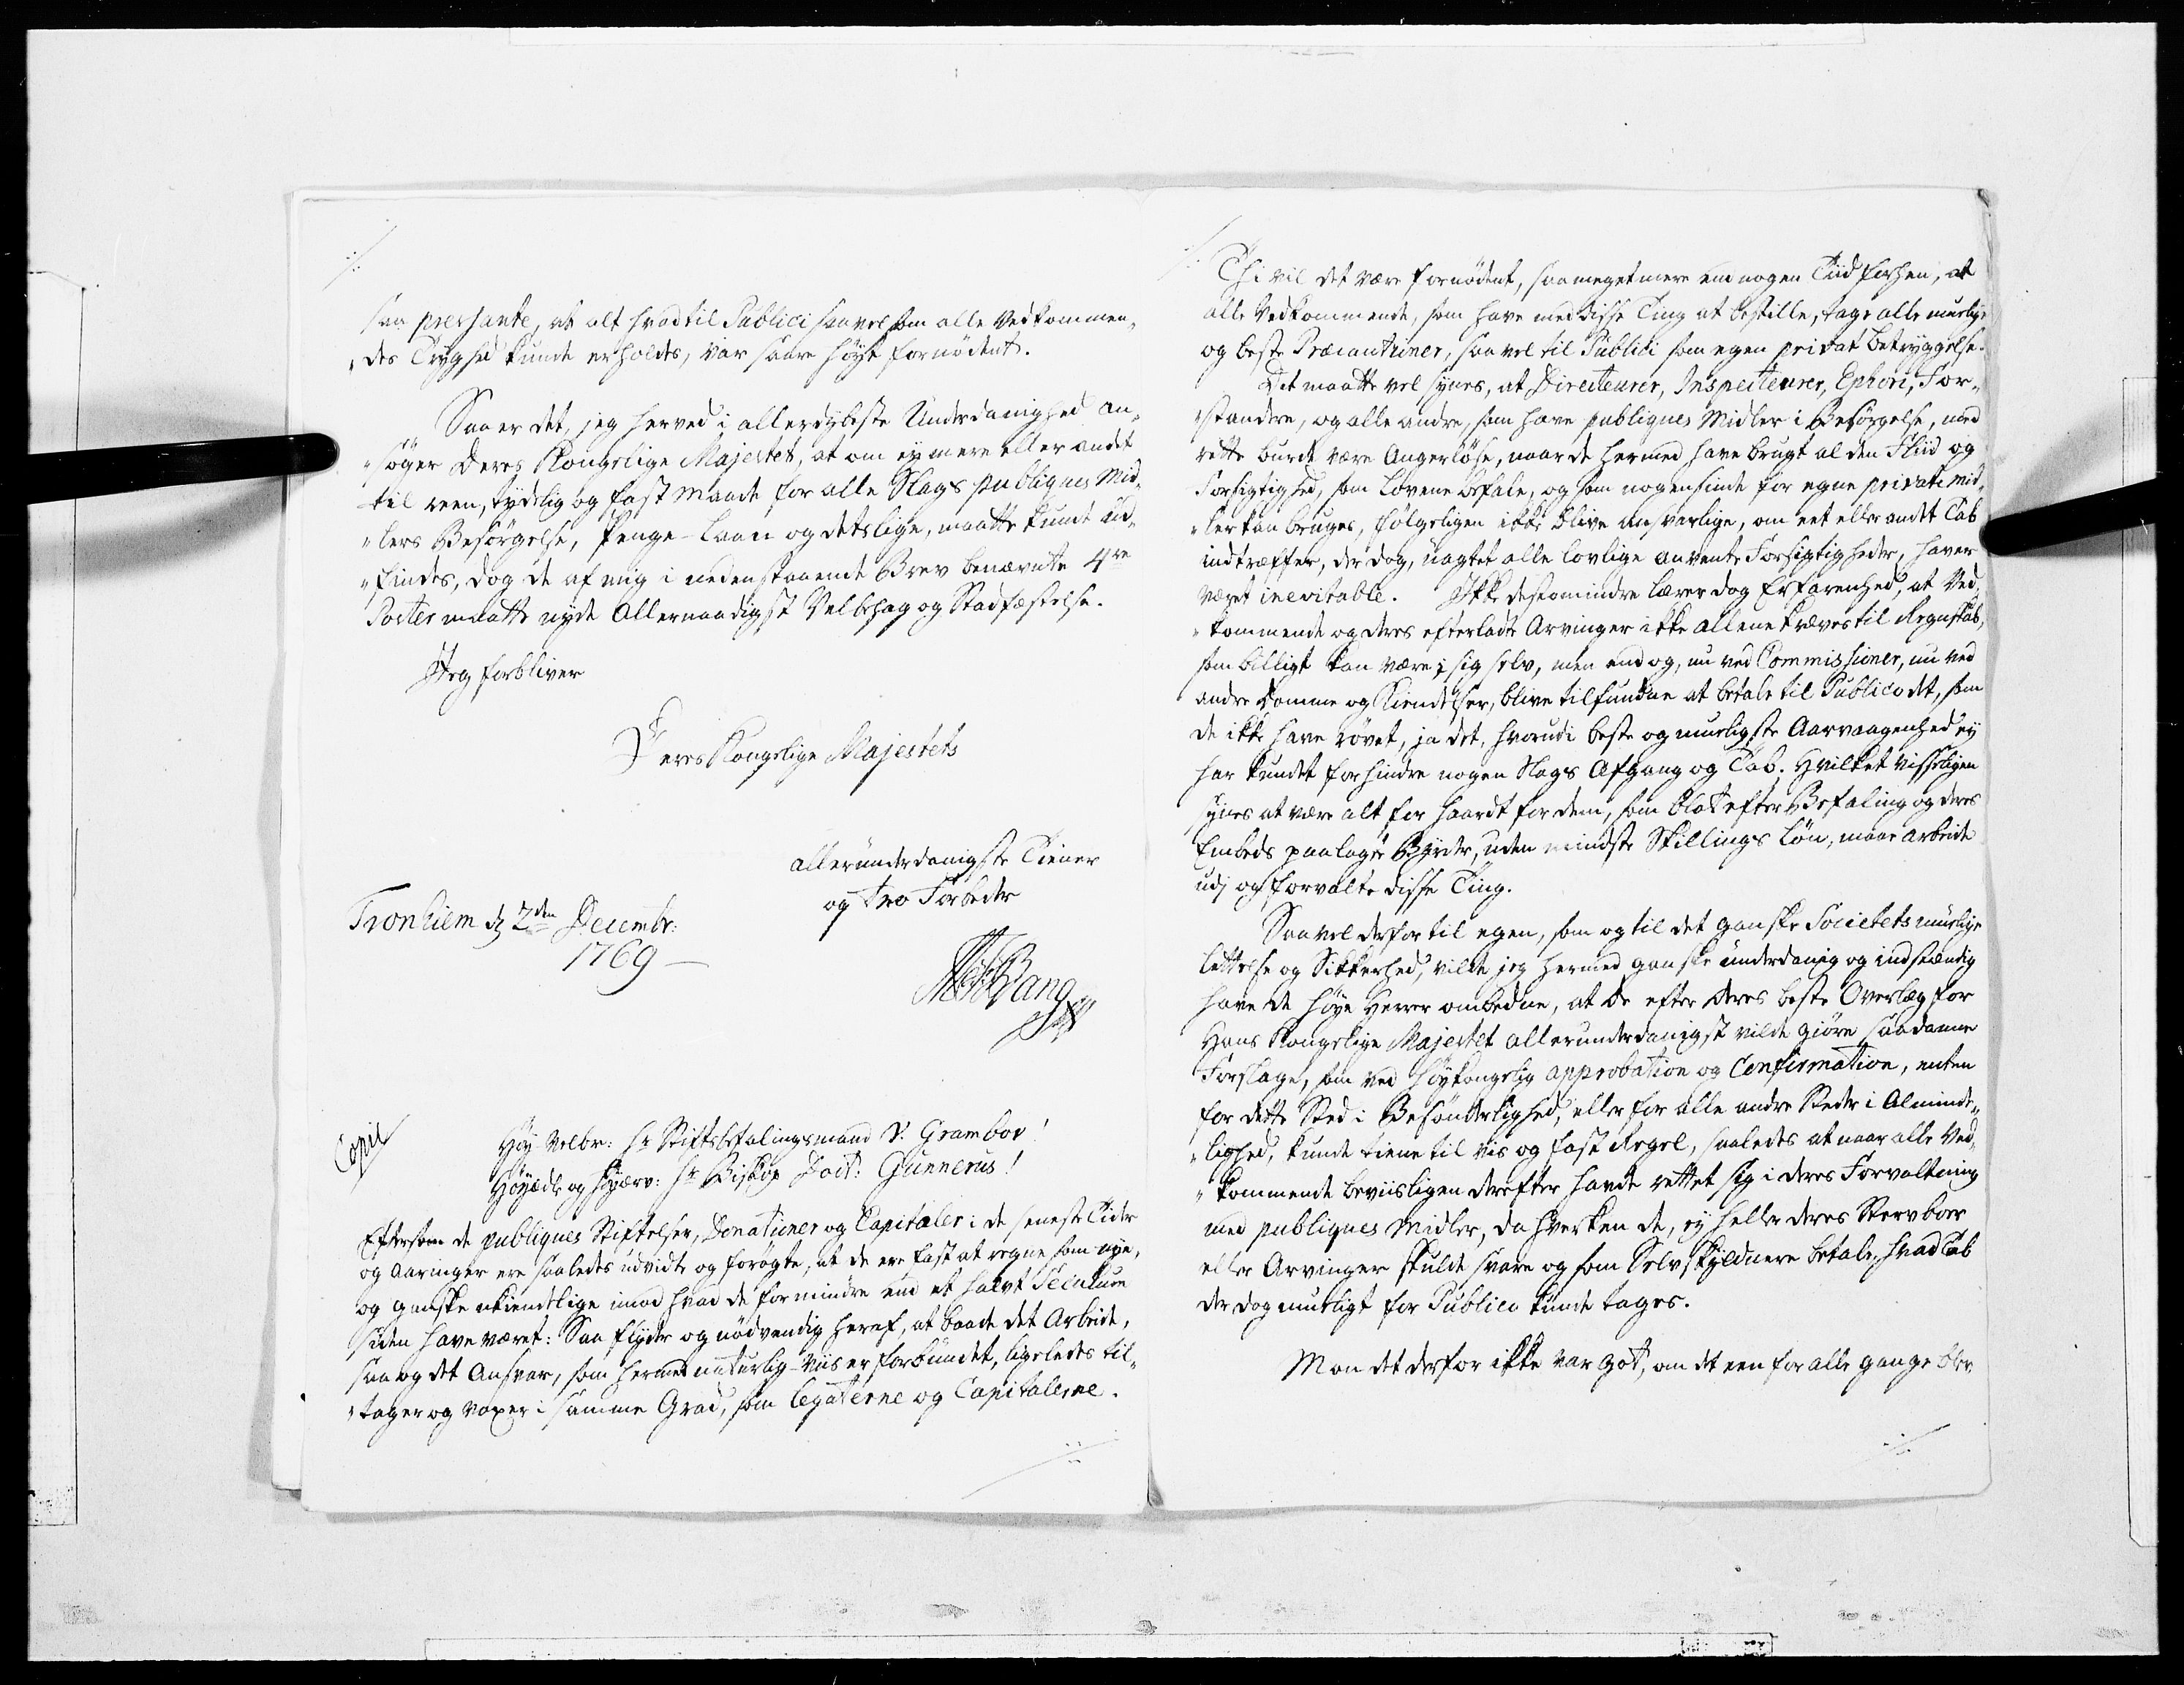 saa pressante, at alt hvad til Publici saavel som alle Vedkommen,,
,,des Tryghed kunde erholdes, var saare høyst fornødent.
Saa er det, jeg herved i allerdybeste Underdanighed an,,
,,søger Deres Kongelige Majestet, at om ey mere eller andet
til reen, tydelig og fast Maade for alle Slags publiques Mid,,
,,lers Besørgelse, Penge-Laan og detslige, maatte kunde ud,,
,,findes, dog de af mig i nedenstaaende Brev benævnte 4re
Poster maatte nyde Allernaadigst Velbehag og Stadfæstelse.
Jeg forbliver
Deres Kongelige Majestets
allerunderdanigste Tiener
og troe Forbeder
Tronhiem d 2den Decembr:
1769 —
Bang
Copie
Høy-Velbr: Hr Stiftsbefalingsmand v: Grambov!
Høyædle og Høyærv: Hr Biskop Doct: Gunnerus!
Eftersom de publiques Stiftelser, Donationer og Capitaler i de seneste Tider
og Aaringer ere saaledes udvidte og forøgte, at de ere fast at regne som nye,
og ganske ukiendelige imod hvad de for mindre end et halvt Seculum
siden have været: Saa flyder og nødvendig heraf, at baade det Arbeide,
saa og det Ansvar, som hermed naturlig-Viis er forbundet, ligeledes til,,
,,tager og voxer i samme Grad, som Legaterne og Capitalerne.
Thi vil det være fornødent, saa meget mere end nogen Tiid forhen, at
alle Vedkommende, som have med disse Ting at bestille, tage alle muelige
og beste Præcautiuner, saa vel til Publici som egen privat Betryggelse.
Det maatte vel synes, at Directeurer, Inspecteurer, Ephori, For,,
,,standere, og alle andre, som have publiques Midler i Besørgelse, med
rette burde være Angerløse, naar de hermed have brugt al den Fliid og
Forsigtighed, som Lovene befale, og som nogensinde for egne private Mid,,
,,ler kan bruges, følgeligen ikke blive ansvarlige, om eet eller andet Tab
indtræffer, der dog, uagtet alle lovlige anvente Forsigtigheder, haver
været inevitable. Ikke destomindre lærer dog Erfarenhed, at Ved,,
,,kommende og deres efterladte Arvinger ikke allene kræves til Regnskab,
som billigt kan være i sig selv, men end og, nu ved Commissioner, nu ved
andre Domme og Kiendelser, blive tilfundne at betale til Publico det, som
de ikke have røvet, ja det, hvorudi beste og mueligste Aarvaagenhed ey
har kundet forhindre nogen Slags Afgang og Tab. Hvilket visseligen
synes at være alt for haardt for dem, som blot efter Befaling og deres
Embeds paalagde Byrder, uden mindste Skillings Løn, maae arbeide
udj og forvalte disse Ting.
Saavel derfor til egen, som og til det ganske Societets muelige
Lettelse og Sikkerhed, vilde jeg hermed ganske underdanig og indstændig
have de høye Herrer ombedne, at De efter Deres beste Overlæg for
Hans Kongelige Majestet allerunderdanigst vilde giøre saadanne
Forslage, som ved høykongelig approbation og Confirmation, enten
for dette Sted i Besønderlighed, eller for alle andre Steder i Alminde,,
,,lighed, kunde tiene til vis og fast Regel, saaledes at naar alle Ved,,
,,kommende beviisligen derefter havde rettet sig i deres Forvaltning
med publiques Midler, da hverken de, ey heller deres Stervboer
eller Arvinger skulde svare og som Selvskyldnere betale, hvad Tab
der dog mueligt for Publico kunde tages.
Mon det derfor ikke var got, om det een for alle gange blev